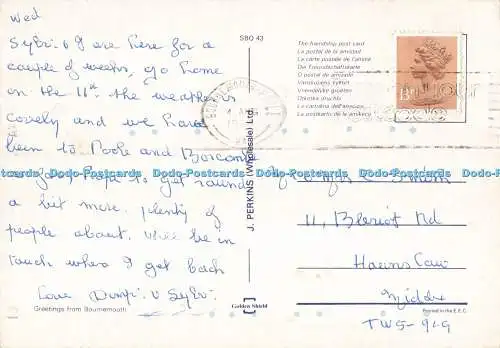 Wed
Sybi & I are here for a
couple of weeks, go home
on the 11th. the weather is
lovely and we have
been to Poole and Boscombe
so far hope to get round
a bit more. plenty of
people about. will be in
touch when I get back
Love & Sybi.
Greetings from Bournemouth
SBO 43
J. PERKINS (Wholesale) Ltd.
Golden Shield
The friendship post card
La postal de la amistad
La carte postale de l'amitié
Die Freundschaftskarte
O postal de amizade
Vänskapens vykort
Vriendelijke groeten
La cartolina dell'amicizia
13
Dodo-Postcards Dodo-Postcards Dodo-Postcards Dodo-Postcards Dodo-Postcards Dodo-Postcards
11, Bleriot Rd
Heston
Middx
TW5-9LG
Printed in the E.E.C.